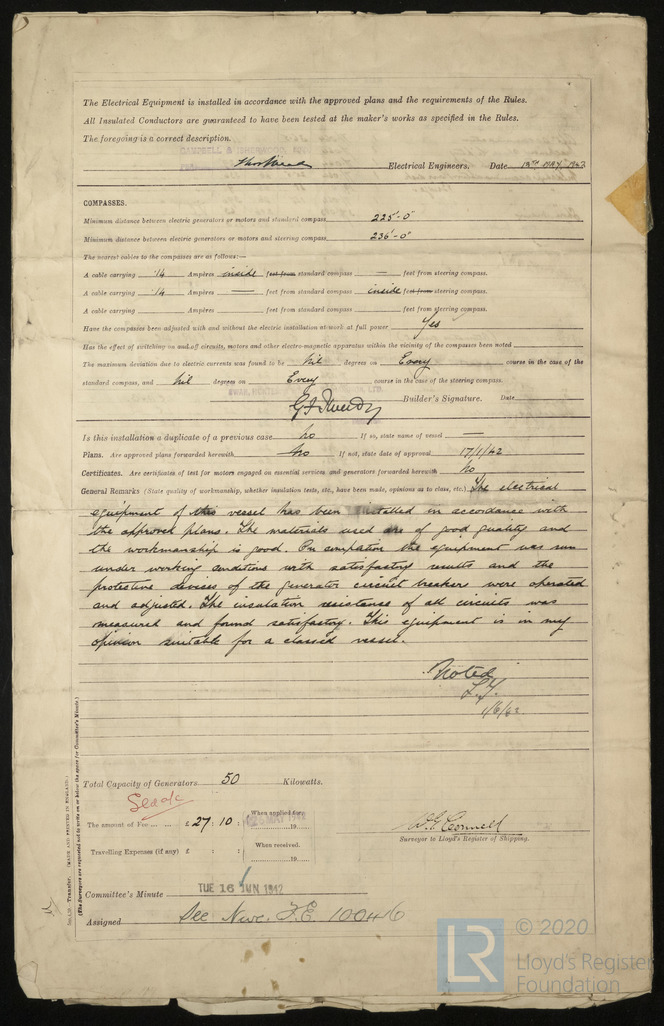 The Electrical Equipment is installed in accordance with the approved plans and the requirements of the Rules.
All Insulated Conductors are guaranteed to have been tested at the maker's works as specified in the Rules.
The foregoing is a correct description.
Electrical Engineers. Date 19TH MAY, 1942
COMPASSES.
Minimum distance between electric generators or motors and standard compass 225'-0"
Minimum distance between electric generators or motors and steering compass 236'-0"
The nearest cables to the compasses are as follows:—
A cable carrying .14 Ampères inside feet from standard compass — feet from steering compass.
A cable carrying .14 Ampères — feet from standard compass inside feet from steering compass.
A cable carrying Ampères feet from standard compass feet from steering compass.
Have the compasses been adjusted with and without the electric installation at work at full power Yes
Has the effect of switching on and off circuits, motors and other electro-magnetic apparatus within the vicinity of the compasses been noted
The maximum deviation due to electric currents was found to be Nil degrees on Every course in the case of the
standard compass, and Nil degrees on Every course in the case of the steering compass.
SWAN, HUNTER LTD.
Builder's Signature. Date
Is this installation a duplicate of a previous case No If so, state name of vessel —
Plans. Are approved plans forwarded herewith No If not, state date of approval 17/1/42
Certificates. Are certificates of test for motors engaged on essential services and generators forwarded herewith No
General Remarks (State quality of workmanship, whether insulation tests, etc., have been made, opinions as to class, etc.) The electrical
equipment of this vessel has been installed in accordance with
the approved plans. The materials used are of good quality and
the workmanship is good. On completion the equipment was run
under working conditions with satisfactory results and the
protective devises of the generator circuit breaker were operated
and adjusted. The insulation resistance of all circuits was
measured and found satisfactory. This equipment is in my
opinion suitable for a classed vessel.
Noted
1/6/42
Total Capacity of Generators 50 Kilowatts.
The amount of Fee ... ... £ 27 : 10 : When applied for, 19
Travelling Expenses (if any) £ : : When received, 19
Surveyor to Lloyd's Register of Shipping.
Committee's Minute TUE 16 JUN 1942
Assigned See Nwc. F.E. 10046
(MADE AND PRINTED IN ENGLAND.)
(The Surveyors are requested not to write on or below the space for Committee's Minute)
© 2020
LR
Lloyd's Register
Foundation